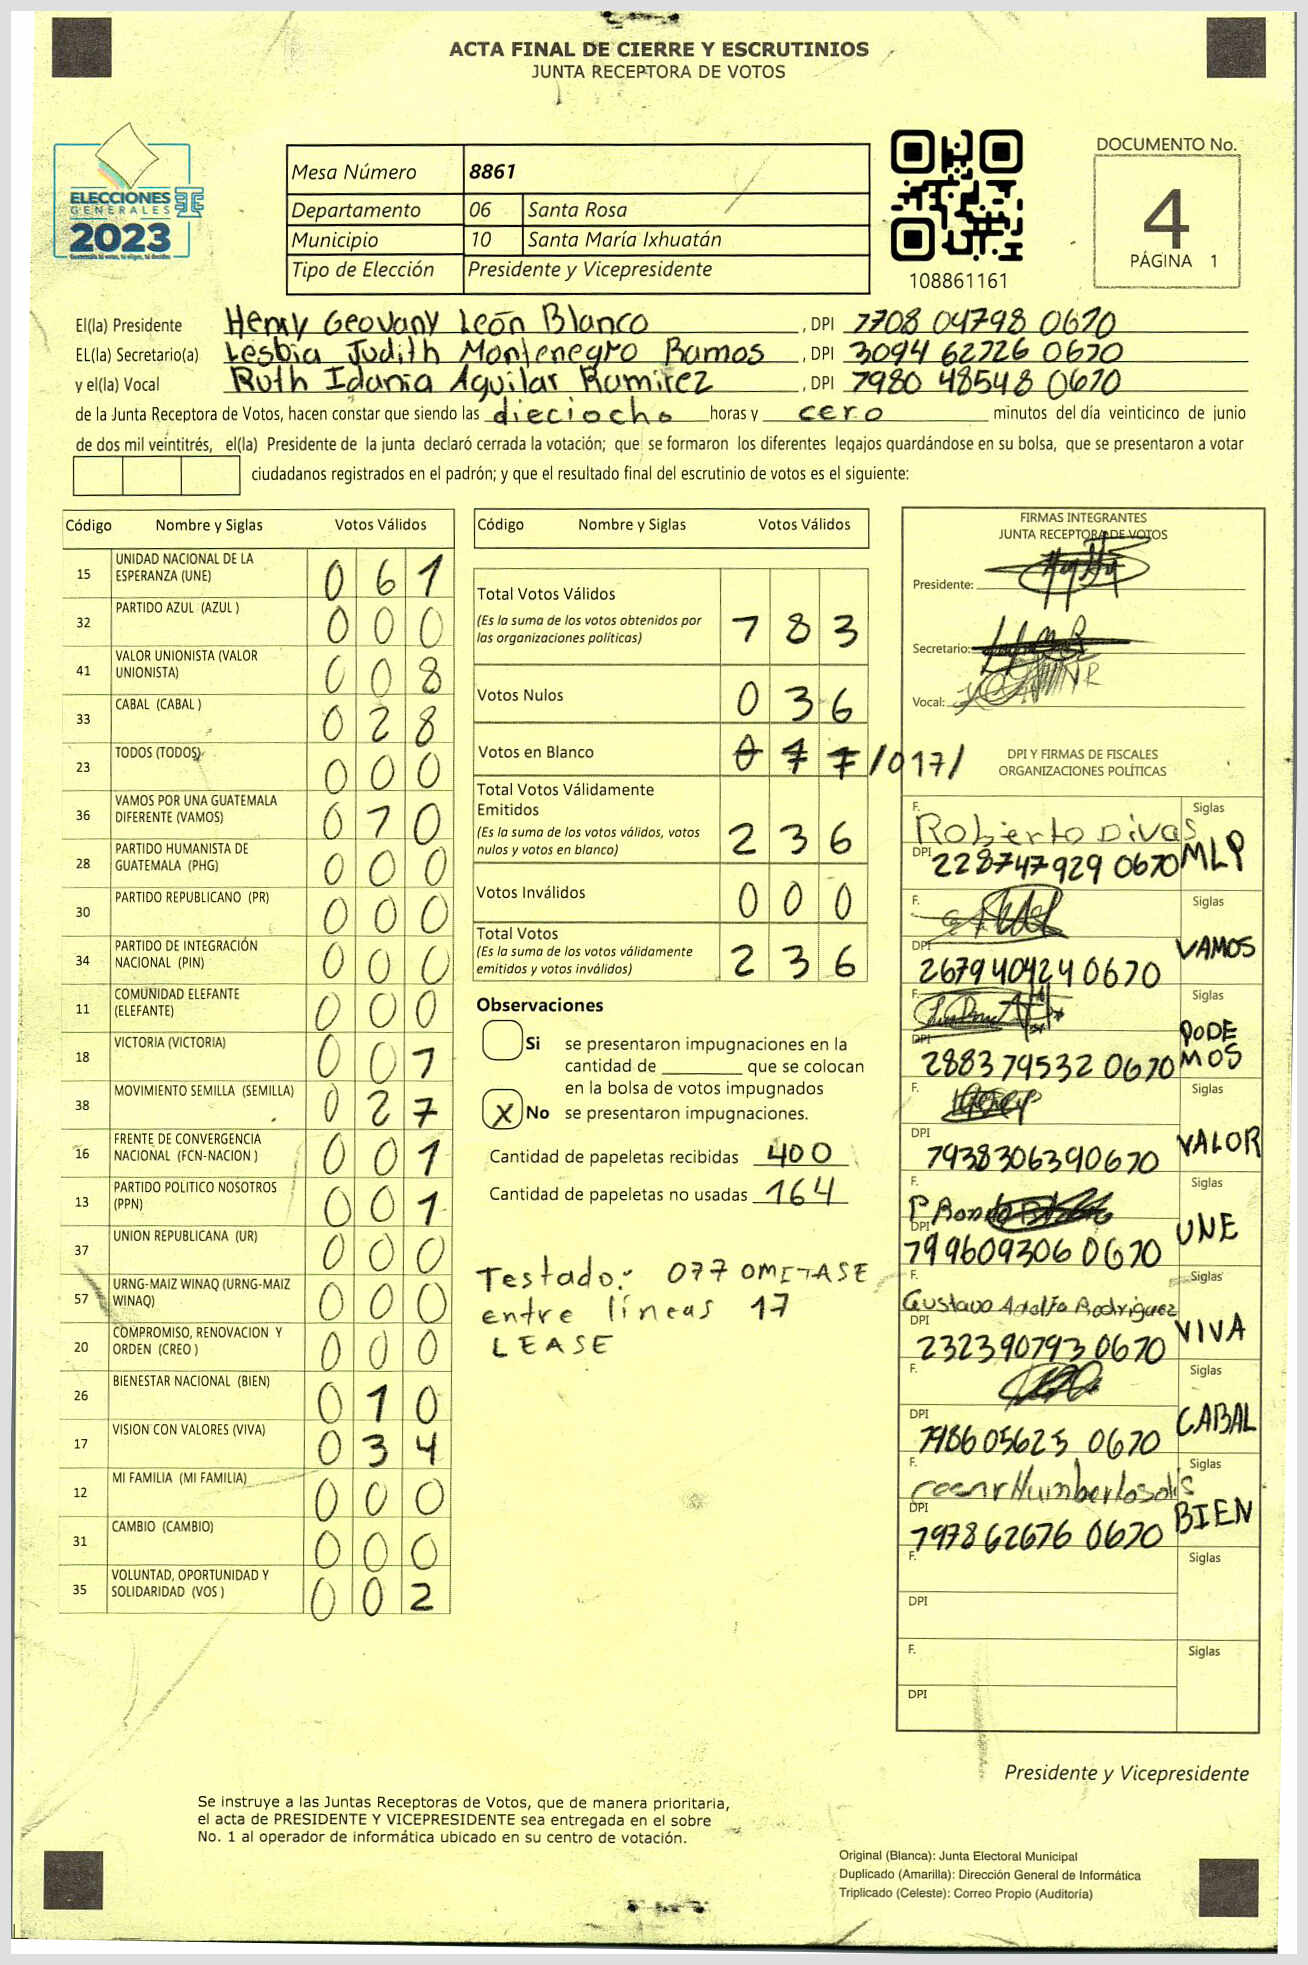 ACTA FINAL DE CIERRE Y ESCRUTINIOS
JUNTA RECEPTORA DE VOTOS
ELECCIONES
GENERALES
2023
Guatemala tú votas, tú eliges, tú decides
Mesa Número 8861
Departamento 06 Santa Rosa
Municipio 10 Santa María Ixhuatán
Tipo de Elección Presidente y Vicepresidente
108861161
DOCUMENTO No.
4
PÁGINA 1
El(la) Presidente Henry Geovany León Blanco, DPI 7708 04798 0670
EL(la) Secretario(a) Lesbia Judith Montenegro Ramos, DPI 3094 62726 0670
y el(la) Vocal Ruth Idania Aguilar Ramirez, DPI 7980 48548 0670
de la Junta Receptora de Votos, hacen constar que siendo las dieciocho horas y cero minutos del día veinticinco de junio
de dos mil veintitrés, el(la) Presidente de la junta declaró cerrada la votación; que se formaron los diferentes legajos quardándose en su bolsa, que se presentaron a votar
ciudadanos registrados en el padrón; y que el resultado final del escrutinio de votos es el siguiente:
Código Nombre y Siglas Votos Válidos
15 UNIDAD NACIONAL DE LA ESPERANZA (UNE) 0 6 1
32 PARTIDO AZUL (AZUL ) 0 0 0
41 VALOR UNIONISTA (VALOR UNIONISTA) 0 0 8
33 CABAL (CABAL ) 0 2 8
23 TODOS (TODOS) 0 0 0
36 VAMOS POR UNA GUATEMALA DIFERENTE (VAMOS) 0 7 0
28 PARTIDO HUMANISTA DE GUATEMALA (PHG) 0 0 0
30 PARTIDO REPUBLICANO (PR) 0 0 0
34 PARTIDO DE INTEGRACIÓN NACIONAL (PIN) 0 0 0
11 COMUNIDAD ELEFANTE (ELEFANTE) 0 0 0
18 VICTORIA (VICTORIA) 0 0 1
38 MOVIMIENTO SEMILLA (SEMILLA) 0 2 7
16 FRENTE DE CONVERGENCIA NACIONAL (FCN-NACION ) 0 0 1
13 PARTIDO POLITICO NOSOTROS (PPN) 0 0 1
37 UNION REPUBLICANA (UR) 0 0 0
57 URNG-MAIZ WINAQ (URNG-MAIZ WINAQ) 0 0 0
20 COMPROMISO, RENOVACION Y ORDEN (CREO ) 0 0 0
26 BIENESTAR NACIONAL (BIEN) 0 1 0
17 VISION CON VALORES (VIVA) 0 3 4
12 MI FAMILIA (MI FAMILIA) 0 0 0
31 CAMBIO (CAMBIO) 0 0 0
35 VOLUNTAD, OPORTUNIDAD Y SOLIDARIDAD (VOS ) 0 0 2
Código Nombre y Siglas Votos Válidos
Total Votos Válidos
(Es la suma de los votos obtenidos por
las organizaciones políticas) 7 8 3
Votos Nulos 0 3 6
Votos en Blanco 0 7 7 /017/
Total Votos Válidamente
Emitidos
(Es la suma de los votos válidos, votos
nulos y votos en blanco) 2 3 6
Votos Inválidos 0 0 0
Total Votos
(Es la suma de los votos válidamente
emitidos y votos inválidos) 2 3 6
Observaciones
Si se presentaron impugnaciones en la
cantidad de ________ que se colocan
en la bolsa de votos impugnados
X No se presentaron impugnaciones.
Cantidad de papeletas recibidas 400
Cantidad de papeletas no usadas 164
Testado: 077 OMITASE
entre líneas 17
LEASE
FIRMAS INTEGRANTES
JUNTA RECEPTORA DE VOTOS
Presidente:
Secretario:
Vocal:
DPI Y FIRMAS DE FISCALES
ORGANIZACIONES POLÍTICAS
F. Roberto Divas Siglas
DPI 228747929 0670 MLP
F. Siglas
DPI 267940424 0670 VAMOS
F. Siglas
DPI 288379532 0670 PODEMOS
F. Siglas
DPI 793830639 0670 VALOR
F. Siglas
DPI 799609306 0670 UNE
F. Gustavo Adolfo Rodriguez Siglas
DPI 232390793 0670 VIVA
F.
DPI 798605625 0670 CABAL
F. Siglas
DPI 797862676 0670 BIEN
F. Siglas
DPI
F. Siglas
DPI
Presidente y Vicepresidente
Se instruye a las Juntas Receptoras de Votos, que de manera prioritaria,
el acta de PRESIDENTE Y VICEPRESIDENTE sea entregada en el sobre
No. 1 al operador de informática ubicado en su centro de votación.
Original (Blanca): Junta Electoral Municipal
Duplicado (Amarilla): Dirección General de Informática
Triplicado (Celeste): Correo Propio (Auditoría)